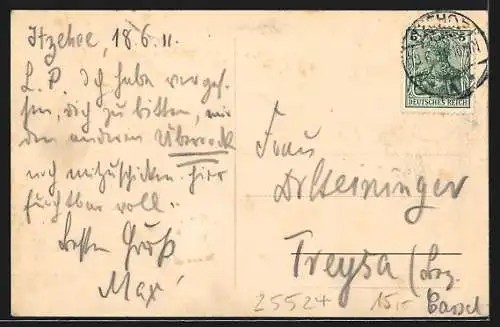 Itzehoe, 18.6.11.
L. P. Ich habe verges-
sen, dich zu bitten, mir
den anderen Überrock
noch mitzuschicken. Hier
furchtbar voll.
Besten Gruß
Max
DEUTSCHES REICH
Frau
Dr Heininger
Treysa (Bez.
Cassel
25524 15,-